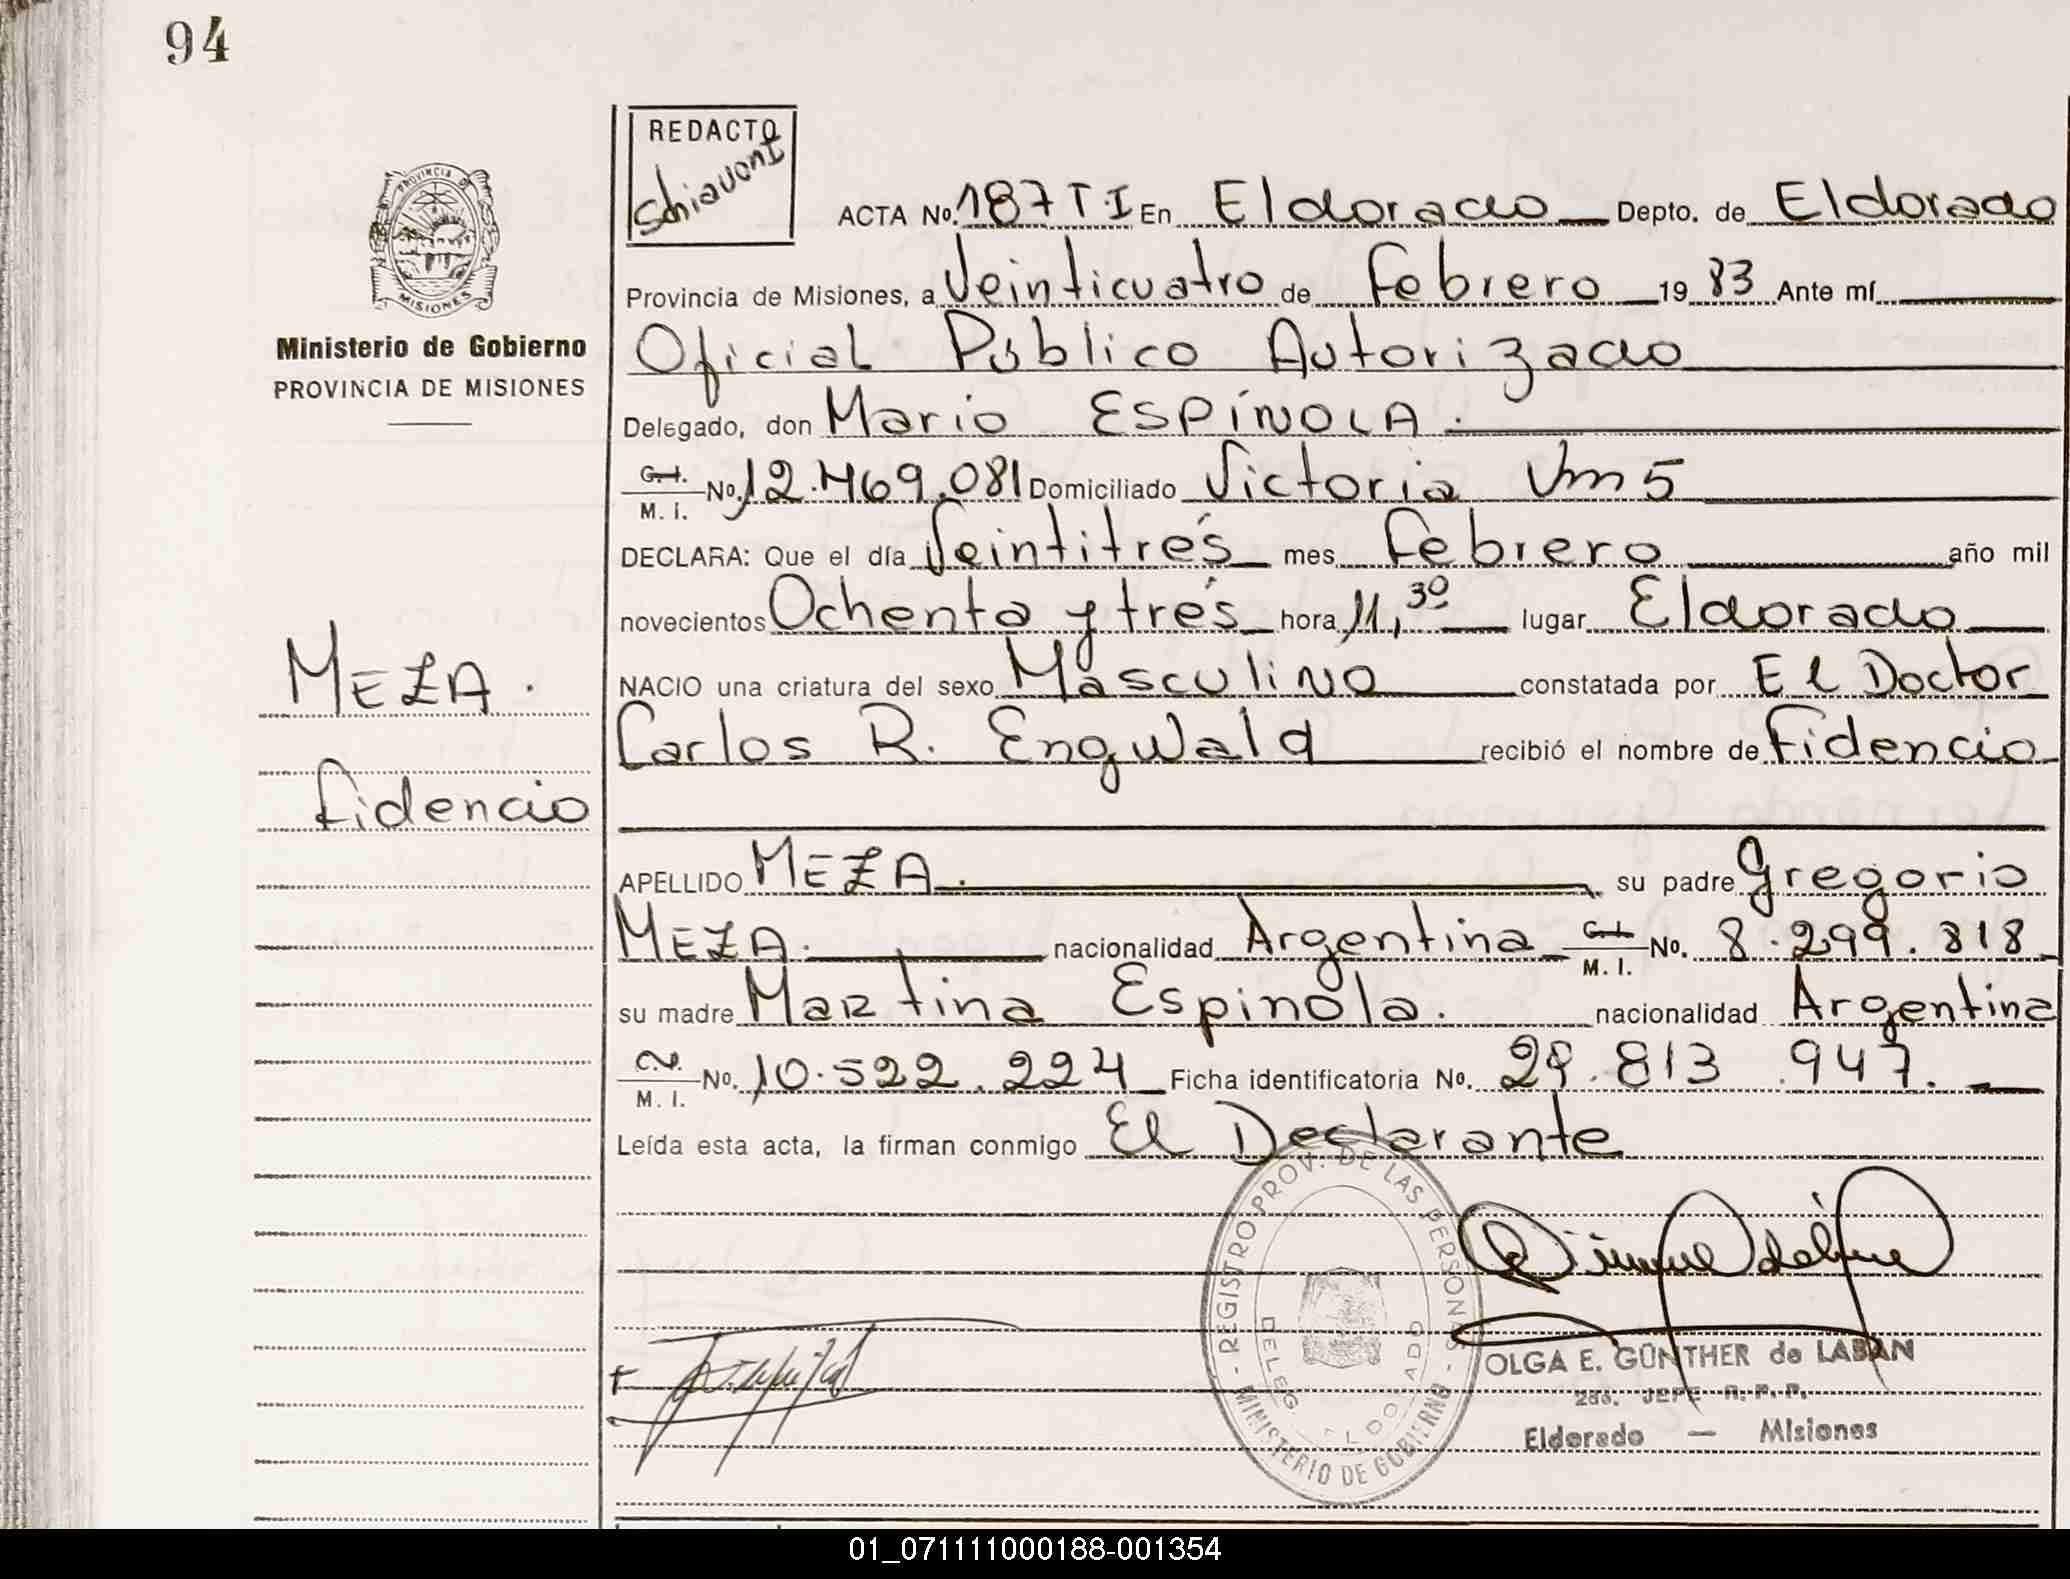 94
REDACTO
Schiavoni
ACTA No. 187 T·I En Eldorado Depto. de Eldorado
Provincia de Misiones, a Veinticuatro de Febrero 19 83 Ante mí
Oficial Público Autorizado
Delegado, don Mario ESPÍNOLA.
C.I. M. I. No. 12.469.081 Domiciliado Victoria Km 5
DECLARA: Que el día Veintitrés mes Febrero año mil
novecientos Ochenta y trés hora 11,30 lugar Eldorado
NACIO una criatura del sexo Masculino constatada por El Doctor
Carlos R. Engwald recibió el nombre de Fidencio
APELLIDO MEZA. su padre Gregorio
MEZA. nacionalidad Argentina C.I. M. I. No. 8.299.818
su madre Martina Espinola. nacionalidad Argentina
M. I. No. 10.522.224 Ficha identificatoria No. 29.813.947.
Leída esta acta, la firman conmigo El Declarante
PROVINCIA DE
MISIONES
Ministerio de Gobierno
PROVINCIA DE MISIONES
MEZA.
Fidencio
REGISTRO PROV. DE LAS PERSONAS
MINISTERIO DE GOBIERNO
DELEG. ELDORADO
OLGA E. GÜNTHER de LABAN
2do. JEFE R. P. P.
Eldorado — Misiones
01_071111000188-001354